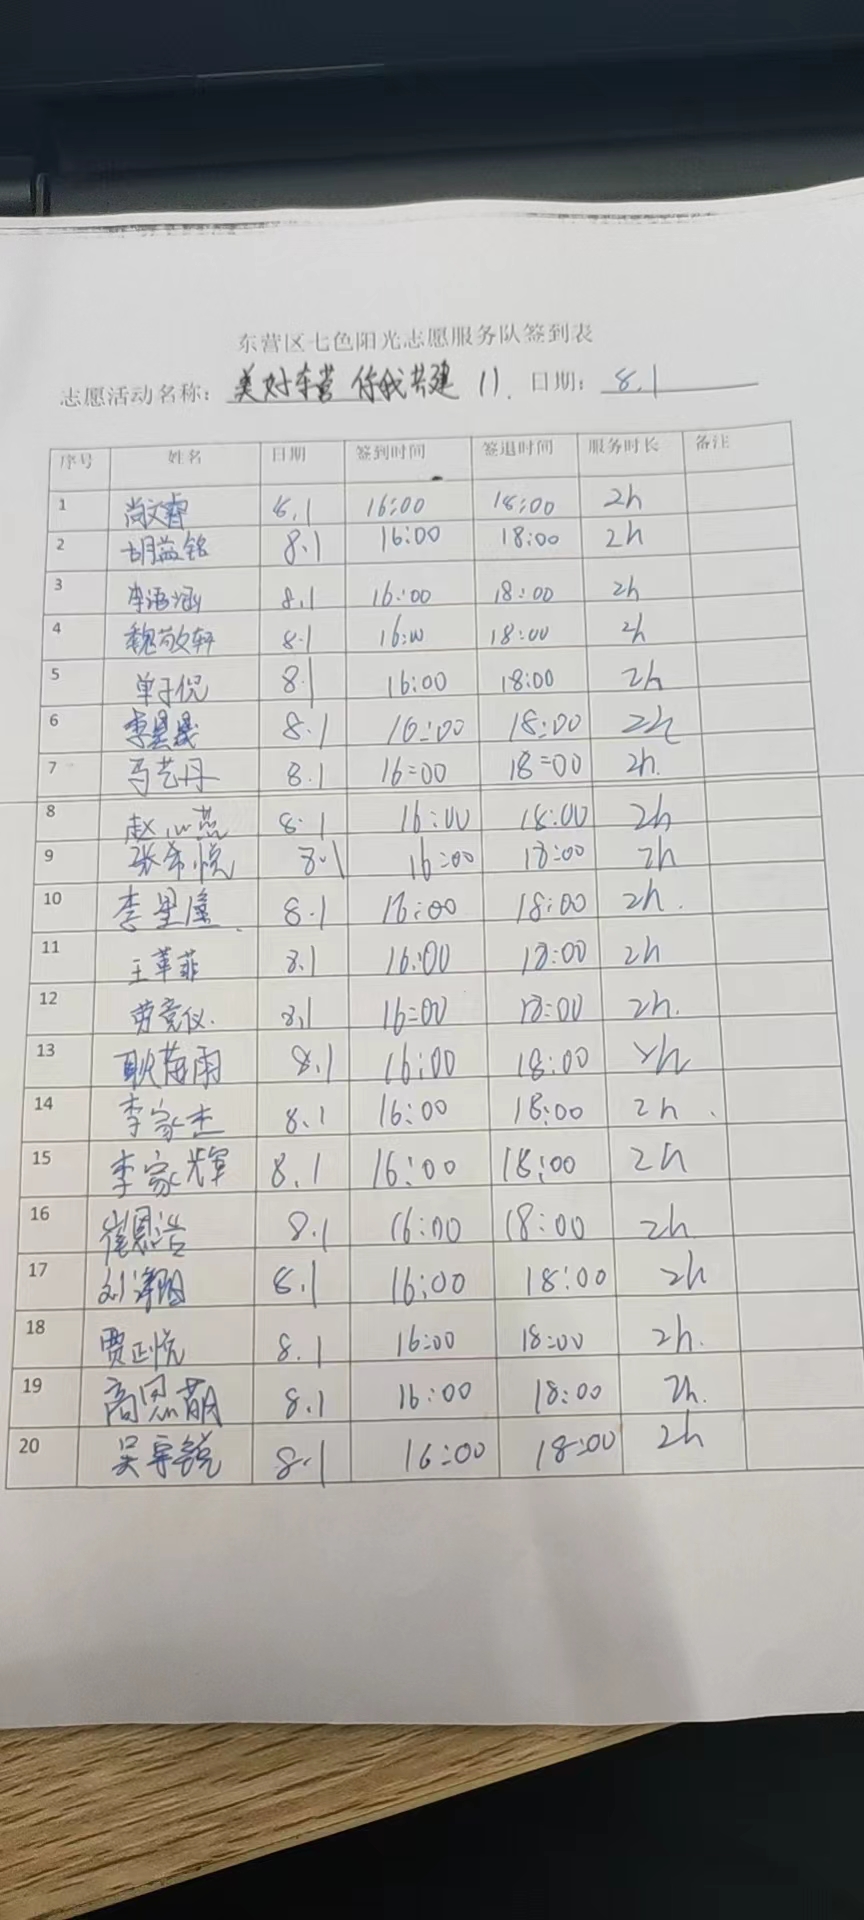 东营区七色阳光志愿服务队签到表
志愿活动名称：美好东营 你我共建 11. 日期：8.1
序号 姓名 日期 签到时间 签退时间 服务时长 备注
1 尚文睿 8.1 16:00 18:00 2h
2 胡益铭 8.1 16:00 18:00 2h
3 李语涵 8.1 16:00 18:00 2h
4 魏敬轩 8.1 16:00 18:00 2h
5 单子倪 8.1 16:00 18:00 2h
6 李星晟 8.1 16:00 18:00 2h
7 马艺丹 8.1 16:00 18:00 2h.
8 赵心燕 8.1 16:00 18:00 2h
9 张希悦 8.1 16:00 18:00 2h
10 李星 8.1 16:00 18:00 2h.
11 王革菲 8.1 16:00 18:00 2h
12 劳竞仪. 8.1 16:00 18:00 2h.
13 耿雨 8.1 16:00 18:00 2h
14 李家杰 8.1 16:00 18:00 2h.
15 李家辉 8.1 16:00 18:00 2h
16 崔恩浩 8.1 16:00 18:00 2h
17 刘 8.1 16:00 18:00 2h
18 贾正悦 8.1 16:00 18:00 2h.
19 高思萌 8.1 16:00 18:00 2h.
20 吴宇锐 8.1 16:00 18:00 2h